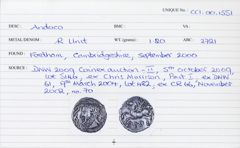 UNIQUE No. CCI. 00.1551
DESC: Andoco BMC: VA:
METAL/DENOM: R Unit WT (grains): 1.20 ABC: 2721
FOUND: Fordham, Cambridgeshire, September 2000
SOURCE: DNW 2009 Coinex auction - II, 5th October 2009,
lot 5146, ex Chris Morrison, Part I, ex DNW
61, 9th March 2004, lot 42, ex CR 66, November
2002, no. 70